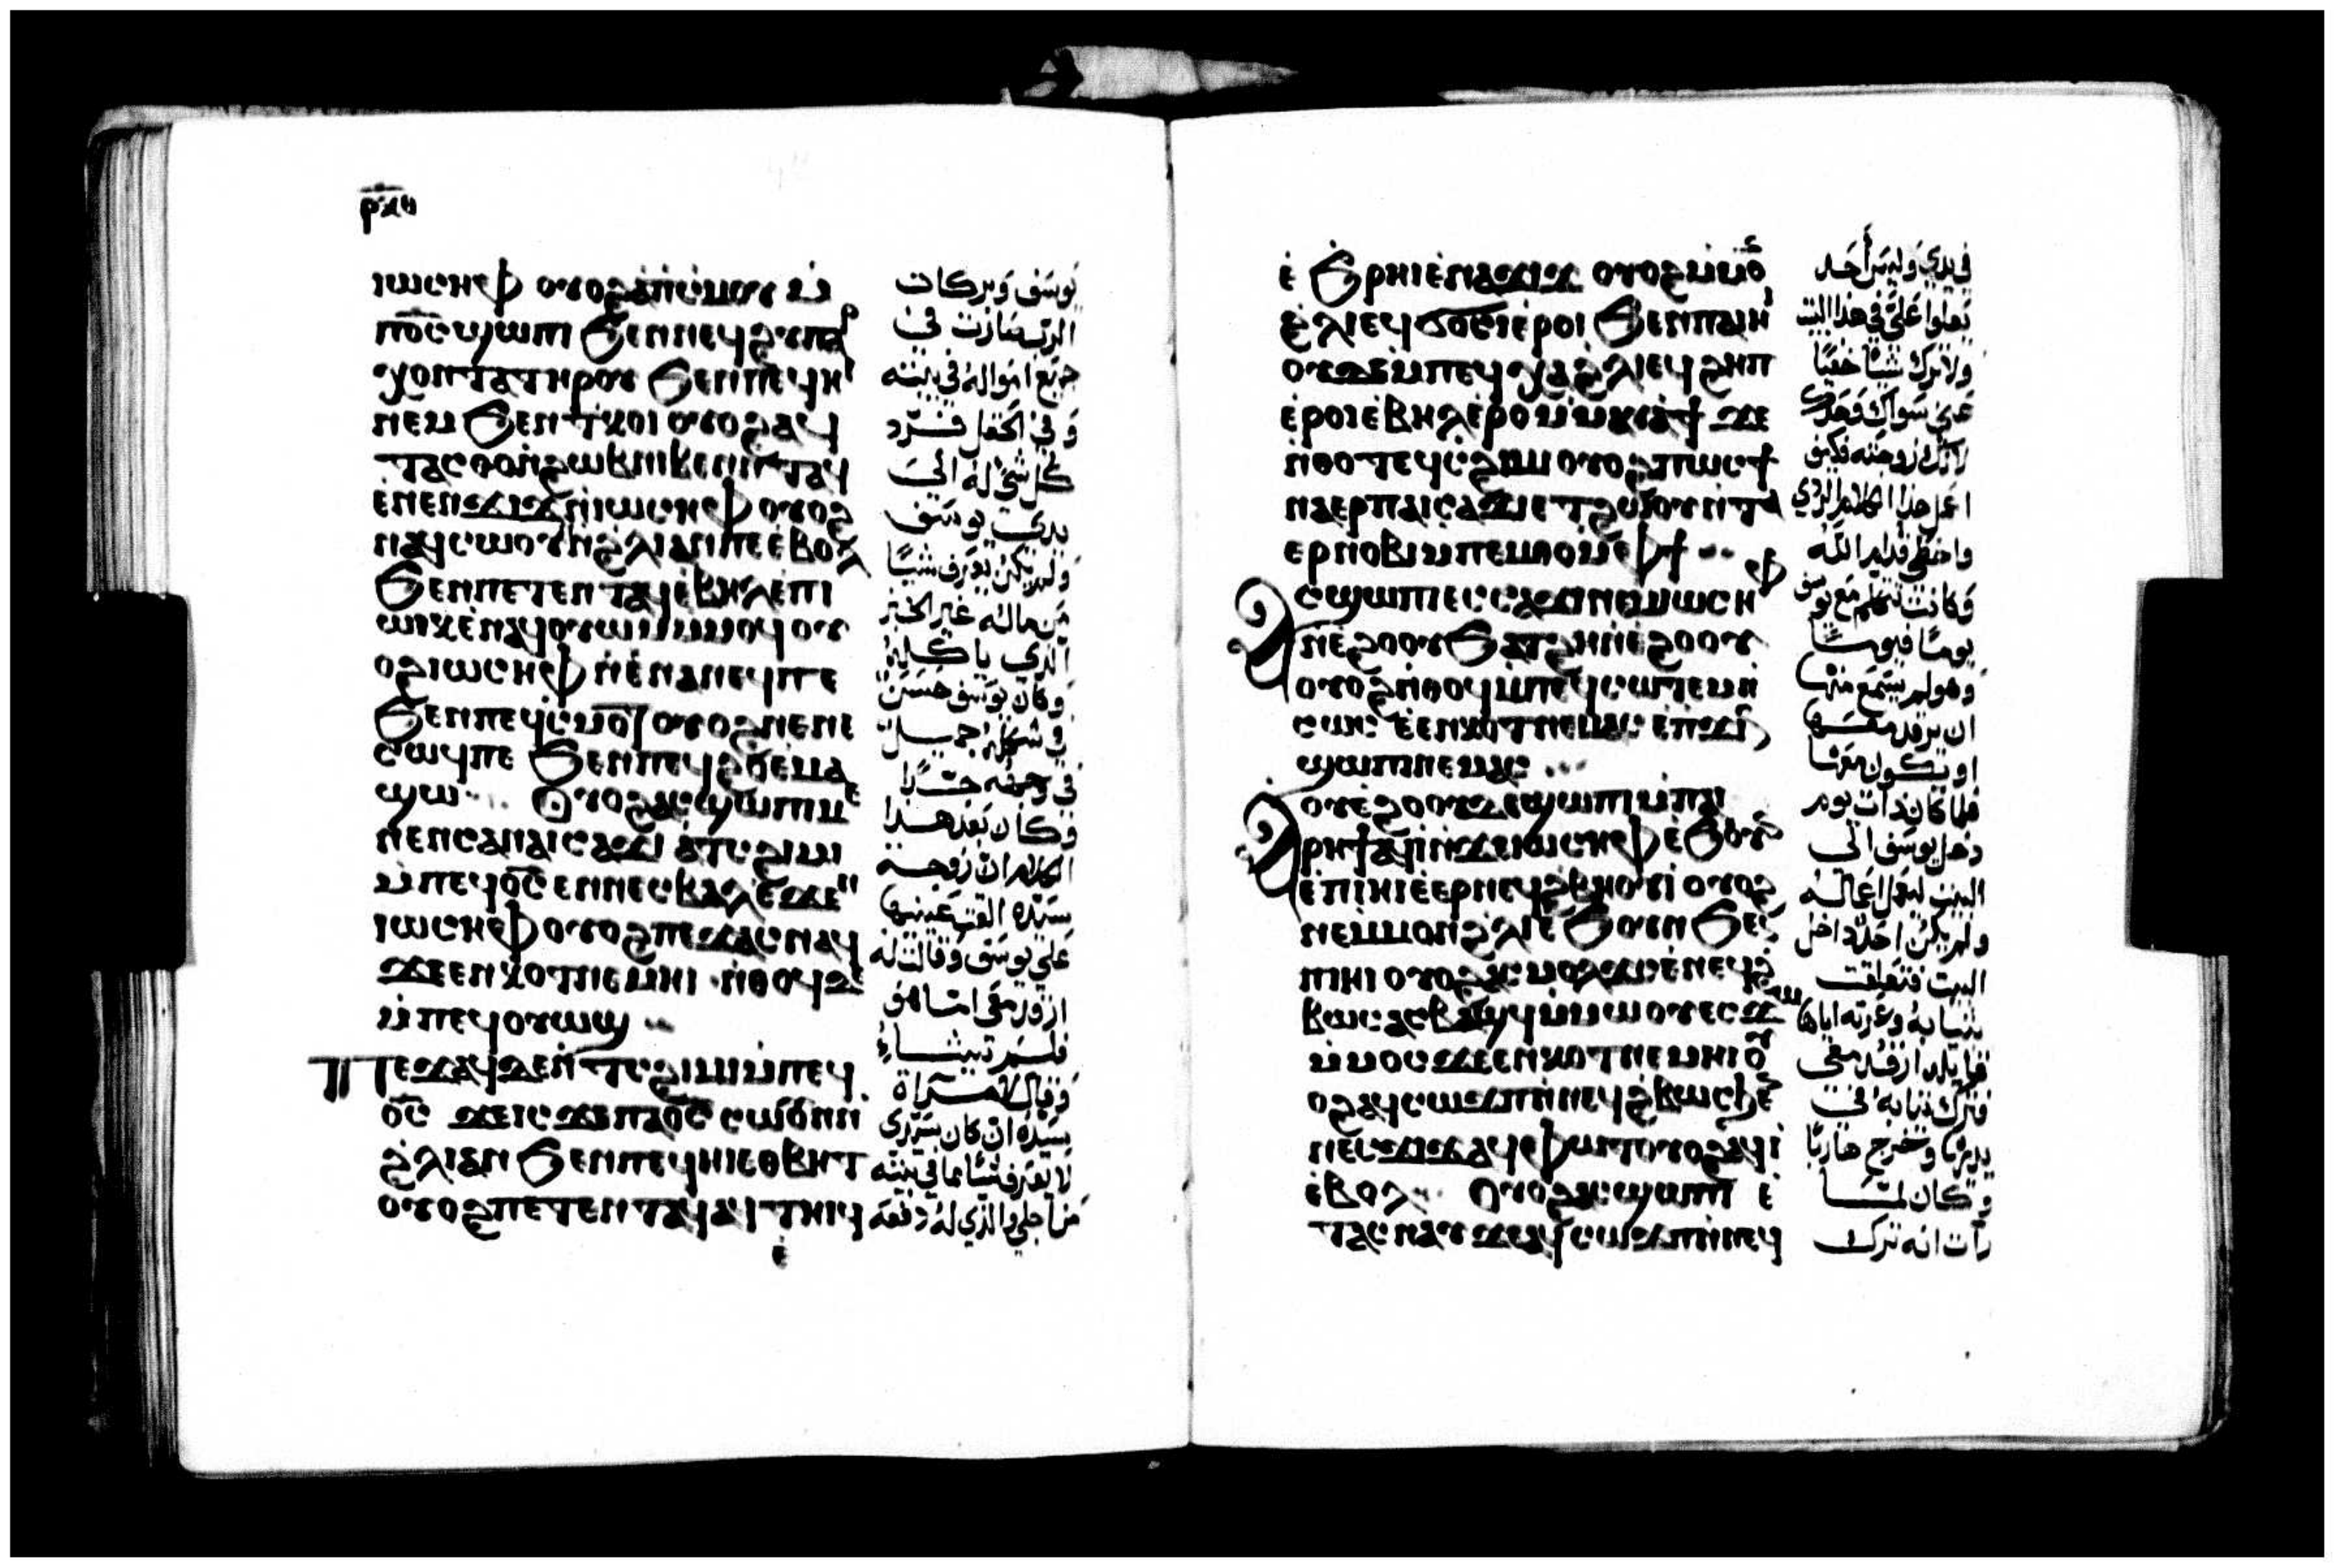 ⲓⲱⲥⲏⲫ ⲟⲩⲟϩ ⲁⲡⲓⲥⲙⲟⲩ ⲙ̀
ⲡϭ̅ⲥ̅ ϣⲱⲡⲓ ϧⲉⲛⲛⲉϥϩⲩⲡⲁⲣ
ⲭⲟⲛⲧⲁ ⲧⲏⲣⲟⲩ ϧⲉⲛⲡⲉϥⲏⲓ
ⲛⲉⲙ ϧⲉⲛⲧⲕⲟⲓ ⲟⲩⲟϩ ⲁϥ
ⲉ̀ⲛⲉⲛϫⲓϫ ⲛ̀ⲓⲱⲥⲏⲫ ⲟⲩⲟϩ
ⲛⲁϥⲥⲱⲟⲩⲛ ⲛ̀ϩⲗⲓ ⲁⲛⲡⲉ ⲉ̀ⲃⲟⲗ
ϧⲉⲛⲡⲉⲧⲉⲛⲧⲁϥ ⲉ̀ⲃⲏⲗ ⲉ̀ⲡⲓ
ⲱⲓⲕ ⲉ̀ⲛⲁϥⲟⲩⲱⲙ ⲙ̀ⲙⲟϥ ⲟⲩ
ⲟϩ ⲓⲱⲥⲏⲫ ⲛ̀ⲉ̀ⲛⲁⲛⲉϥⲡⲉ
ϧⲉⲛⲡⲉϥⲥ̀ⲙⲟⲧ ⲟⲩⲟϩ ⲛⲉⲛⲉ
ⲥⲱϥⲡⲉ ϧⲉⲛⲡⲉϥϩⲟ ⲉ̀ⲙⲁ
ϣⲱ ⲟⲩⲟϩ ⲁⲥϣⲱⲡⲓ ⲙⲉ
ⲛⲉⲛⲥⲁⲛⲁⲓⲥⲁϫⲓ ⲁ̀ⲧⲥϩⲓⲙⲓ
ⲙ̀ⲡⲉϥϭ̅ⲥ̅ ⲉⲛⲛⲉⲥⲃⲁⲗ ⲉ̀ϫⲉⲛ
ⲓⲱⲥⲏⲫ ⲟⲩⲟϩ ⲡⲉϫⲁⲥ ⲛⲁϥ
ϫⲉ ⲉⲛⲕⲟⲧ ⲛⲉⲙⲏⲓ ⲛ̀ⲑⲟϥ ⲇⲉ
ⲙ̀ⲡⲉϥⲟⲩⲱϣ
ⲡⲉϫⲁϥ ⲇⲉ ⲛ̀ⲧⲥϩⲓⲙⲓ ⲙ̀ⲡⲉϥ
ϭ̅ⲥ̅ ϫⲉ ⲓⲥϫⲉ ⲡⲁϭ̅ⲥ̅ ⲥⲱⲟⲩⲛ ⲛ̀
ϩ̀ⲗⲓ ⲁⲛ ϧⲉⲛⲡⲉϥⲏⲓ ⲉⲑⲃⲏⲧ
ⲟⲩⲟϩ ⲡⲉⲧⲉⲛⲧⲁϥ ⲁϥⲧⲏⲓϥ
ⲉ̀
يوسف وبركات
الرب صارت في
جميع امواله في بيته
وفي الحقل فترد
كل شي له الي
يدي يوسف
ولم يكن يعرف شيا
من ماله غير الخبز
الذي ياكله
وكان يوسف حسن
في شكله جميل
في وجهه جدا
وكان بعد هذا
الكلام ان زوجه
سيده القت عينيها
علي يوسف وقالت له
ارقد معي اما هو
فلم يشاء
وقال لامراة
سيده ان كان سيدي
لا يعرف شيا مما في بيته
من اجلي والذي له دفعه
ⲉ̀ϧⲣⲏⲓ ⲉ̀ⲛⲁϫⲓϫ ⲟⲩⲟϩ ⲙ̀ⲙⲟⲛ
ϩ̀ⲗⲓ ⲉϥϭⲟⲥⲓ ⲉ̀ⲣⲟⲓ ϧⲉⲛⲡⲁⲓⲏⲓ
ⲟⲩⲇⲉ ⲙ̀ⲡⲉϥⲭⲁ ϩ̀ⲗⲓ ⲉϥϩⲏⲡ
ⲉ̀ⲣⲟⲓ ⲉ̀ⲃⲏⲗ ⲉ̀ⲣⲟ ⲙ̀ⲙⲁⲩⲁϯ ϫⲉ
ⲛ̀ⲑⲟ ⲧⲉϥⲥ̀ϩⲓⲙⲓ ⲟⲩⲟϩ ⲡⲱⲥ ϯ
ⲛⲁⲉⲣ ⲡⲁⲓⲥⲁϫⲓ ⲉⲧϩⲱⲟⲩ ⲛ̀ⲧⲁ
ⲉⲣⲛⲟⲃⲓ ⲙ̀ⲡⲉⲙⲑⲟ ⲙ̀ⲫϯ
ⲁⲥϣⲱⲡⲓ ⲉⲥⲥⲁϫⲓ ⲛⲉⲙⲓⲱⲥⲏⲫ
ⲛ̀ⲉϩⲟⲟⲩ ϧⲁⲧϩⲏ ⲛ̀ⲉϩⲟⲟⲩ
ⲟⲩⲟϩ ⲛ̀ⲑⲟϥ ⲙ̀ⲡⲉϥⲥⲱⲧⲉⲙ ⲛ̀
ⲥⲱⲥ ⲉ̀ⲉⲛⲕⲟⲧ ⲛⲉⲙⲁⲥ ⲉ̀ⲡϫⲓⲛ
ϣⲱⲡⲓ ⲛⲉⲙⲁⲥ
ⲁⲟⲩⲉ̀ϩⲟⲟⲩ ⲇⲉ ϣⲱⲡⲓ ⲙ̀ⲡⲁⲓ
ⲣⲏϯ ⲁϥⲓ ⲛ̀ϫⲉⲓⲱⲥⲏⲫ ⲉ̀ϧⲟⲩⲛ
ⲉ̀ⲡⲓⲏⲓ ⲉⲉⲣⲛⲉϥϩ̀ⲃⲏⲟⲩⲓ̀ ⲟⲩⲟϩ
ⲛⲉⲙ̀ⲙⲟⲛ ϩ̀ⲗⲓ ⲉ̀ϧⲟⲩⲛ ϧⲉⲛ
ⲡⲏⲓ ⲟⲩⲟϩ ⲁⲥⲙⲟⲗϫⲥ ⲉ̀ⲛⲉϥϩ̀
ⲙ̀ⲙⲟⲥ ϫⲉ ⲉⲛⲕⲟⲧ ⲛⲉⲙⲏⲓ ⲟⲩ
ⲟϩ ⲁϥⲥⲱϫⲡ ⲛ̀ⲛⲉϥϩ̀ⲃⲱⲥ ϧⲉⲛ
ⲛⲉⲥϫⲓϫ ⲁϥⲫⲱⲧ ⲟⲩⲟϩ ⲁϥⲓ̀
ⲉ̀ⲃⲟⲗ ⲟⲩⲟϩ ⲁⲥϣⲱⲡⲓ ⲉ̀
ⲧⲁⲥⲛⲁⲩ ϫⲉ ⲁϥⲥⲱϫⲡ ⲛ̀ⲛⲉϥ
في يدي وليس احد
يعلوا علي في هذا البيت
ولا ترك شيا خفيا
عني سواك وحدك
لانك زوجته فكيف
اعمل هذا الكلام الردي
واخطي قدام الله
وكانت تتكلم مع يوسف
يوما فيوما
وهو لم يسمع منها
ان يرقد معها
او يكون معها
فلما كان ذات يوم
دخل يوسف الي
البيت ليعمل اعماله
ولم يكن احد داخل
البيت فتعلقت
بثيابه وعرته اياها
قايله ارقد معي
فترك ثيابه في
يديها وخرج هاربا
وكان لما
رات انه ترك